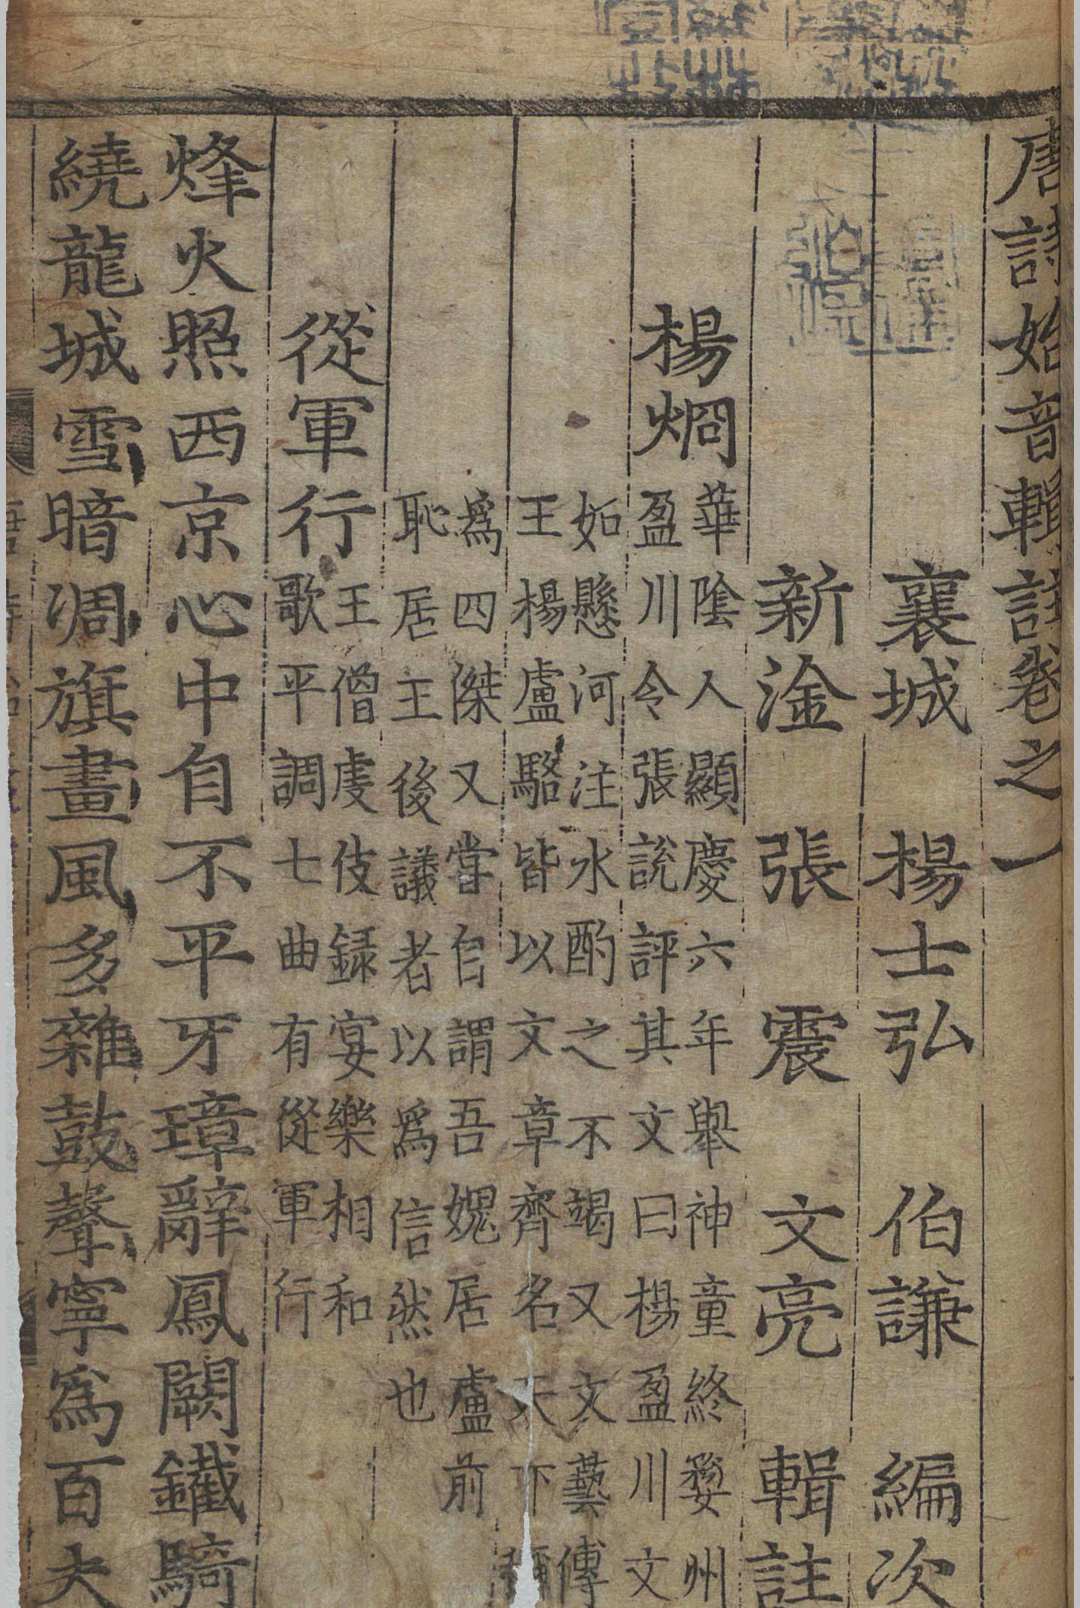 唐詩始音輯註卷之一
襄城 楊士弘 伯謙 編次
新淦 張震 文亮 輯註
楊烱
華陰人顯慶六年舉神童終婺州
盈川令張說評其文曰楊盈川文
如懸河注水酌之不竭又文藝傳
王楊盧駱皆以文章齊名天下
爲四傑又嘗自謂吾媿居盧前
恥居王後議者以爲信然也
從軍行
王僧虔伎録宴樂相和
歌平調七曲有從軍行
烽火照西京心中自不平牙璋辭鳳闕鐵騎
繞龍城雪暗凋旗畫風多雜鼓聲寧爲百夫